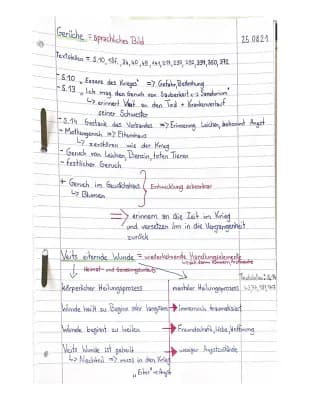 Gerüche = sprachliches Bild 25.08.21
Textstellen = S.10, 13f., 34, 40, 49,
- S.10 „Essenz des Krieges" => Gefahr, Bedrohung
- S.13 „Ich mag den Geruch von Sauberkeit
↳ erinnert Veit an den Tod + Krankenverlauf
seiner Schwester
- S.14 Gestank des Verbandes => Erinnerung Leichen, bekommt Angst
- Mottengeruch => Elternhaus
↳ zerstören wie der Krieg
- Geruch von Leichen, Benzin, toten Tieren
- festlicher Geruch
+ Geruch im Gewächshaus } Entwicklung erkennbar
↳ Blumen
=> erinnern an die Zeit im Krieg
und versetzen ihn in die Vergangenheit
zurück
Veits eiternde Wunde = wiederkehrende Handlungselemente
↳ Heimat- und Genesungsurlaub
Textstellen:
körperlicher Heilungsprozess mentaler Heilungsprozess
Wunde heilt zu Beginn eher langsam → immernoch traumatisiert
Wunde beginnt zu heilen → Freundschaft, Liebe, Hoffnung
Veits Wunde ist geheilt → weniger Angstzustände
↳ Nachteil => muss in den Krieg
„Eiter"